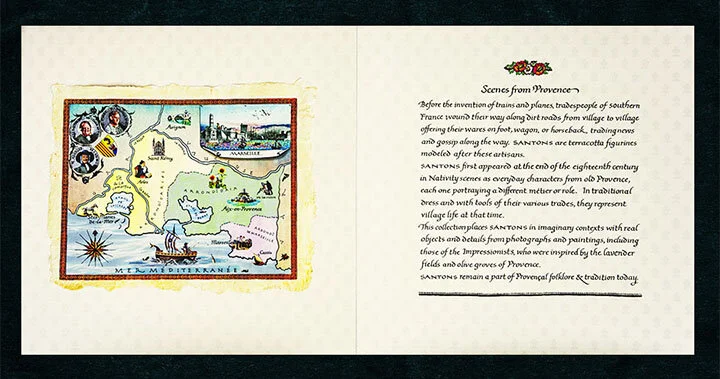 Avignon
MARSEILLE
Saint Rémy
Arles
Aix-en-Provence
MER MÉDITERRANÉE
Scenes from Provence
Before the invention of trains and planes, tradespeople of southern
France wound their way along dirt roads from village to village
offering their wares on foot, wagon, or horseback, trading news
and gossip along the way. SANTONS are terracotta figurines
modeled after these artisans.
SANTONS first appeared at the end of the eighteenth century
in Nativity scenes as everyday characters from old Provence,
each one portraying a different métier or role. In traditional
dress and with tools of their various trades, they represent
village life at that time.
This collection places SANTONS in imaginary contexts with real
objects and details from photographs and paintings, including
those of the Impressionists, who were inspired by the lavender
fields and olive groves of Provence.
SANTONS remain a part of Provençal folklore & tradition today.